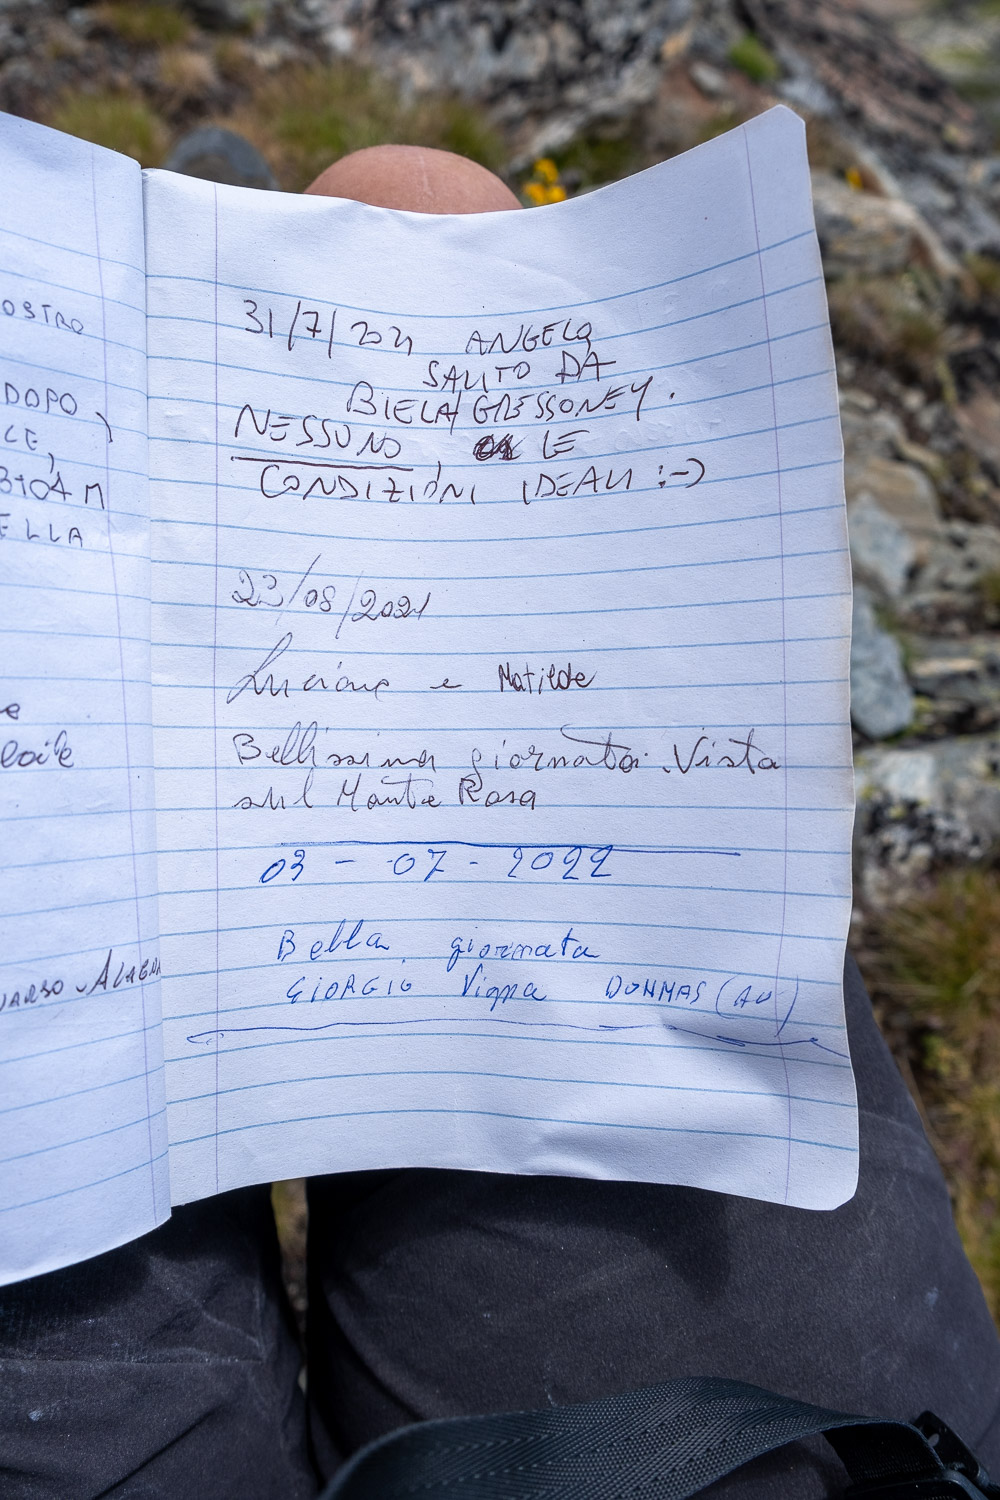 OSTRO
DOPO
CE,
3104 M
ELLA
e
VARSO - ALAGNA
31/7/2021 ANGELO
SALITO DA
BIELA/GRESSONEY.
NESSUNO, LE
CONDIZIONI IDEALI :-)
23/08/2021
Luciana e Matilde
Bellissima giornata. Vista
sul Monte Rosa
03 - 07 - 2022
Bella giornata
GIORGIO Vigna DONNAS (AO)